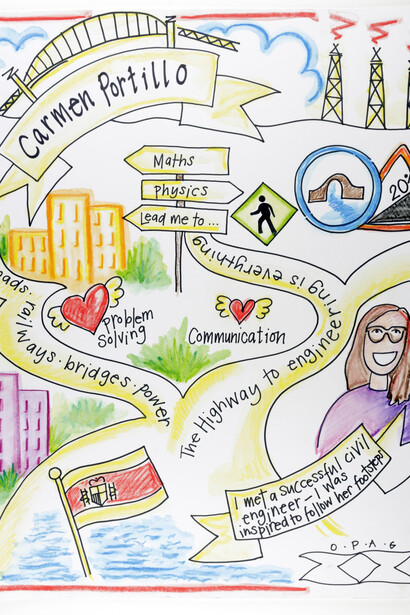 Carmen Portillo
Maths
Physics
Lead me to...
20
oads · railways · bridges · power
Problem
Solving
Communication
The Highway to engineering is everything
I met a successful civil
engineer - I was
inspired to follow her footsteps
O · P · A · G